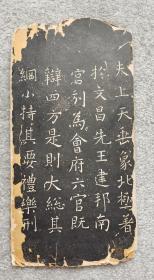 夫上天垂象北極著
扵文昌先王建邦南
宮列為會府六官既
辯四方是則大總其
綱小持其要禮樂刑